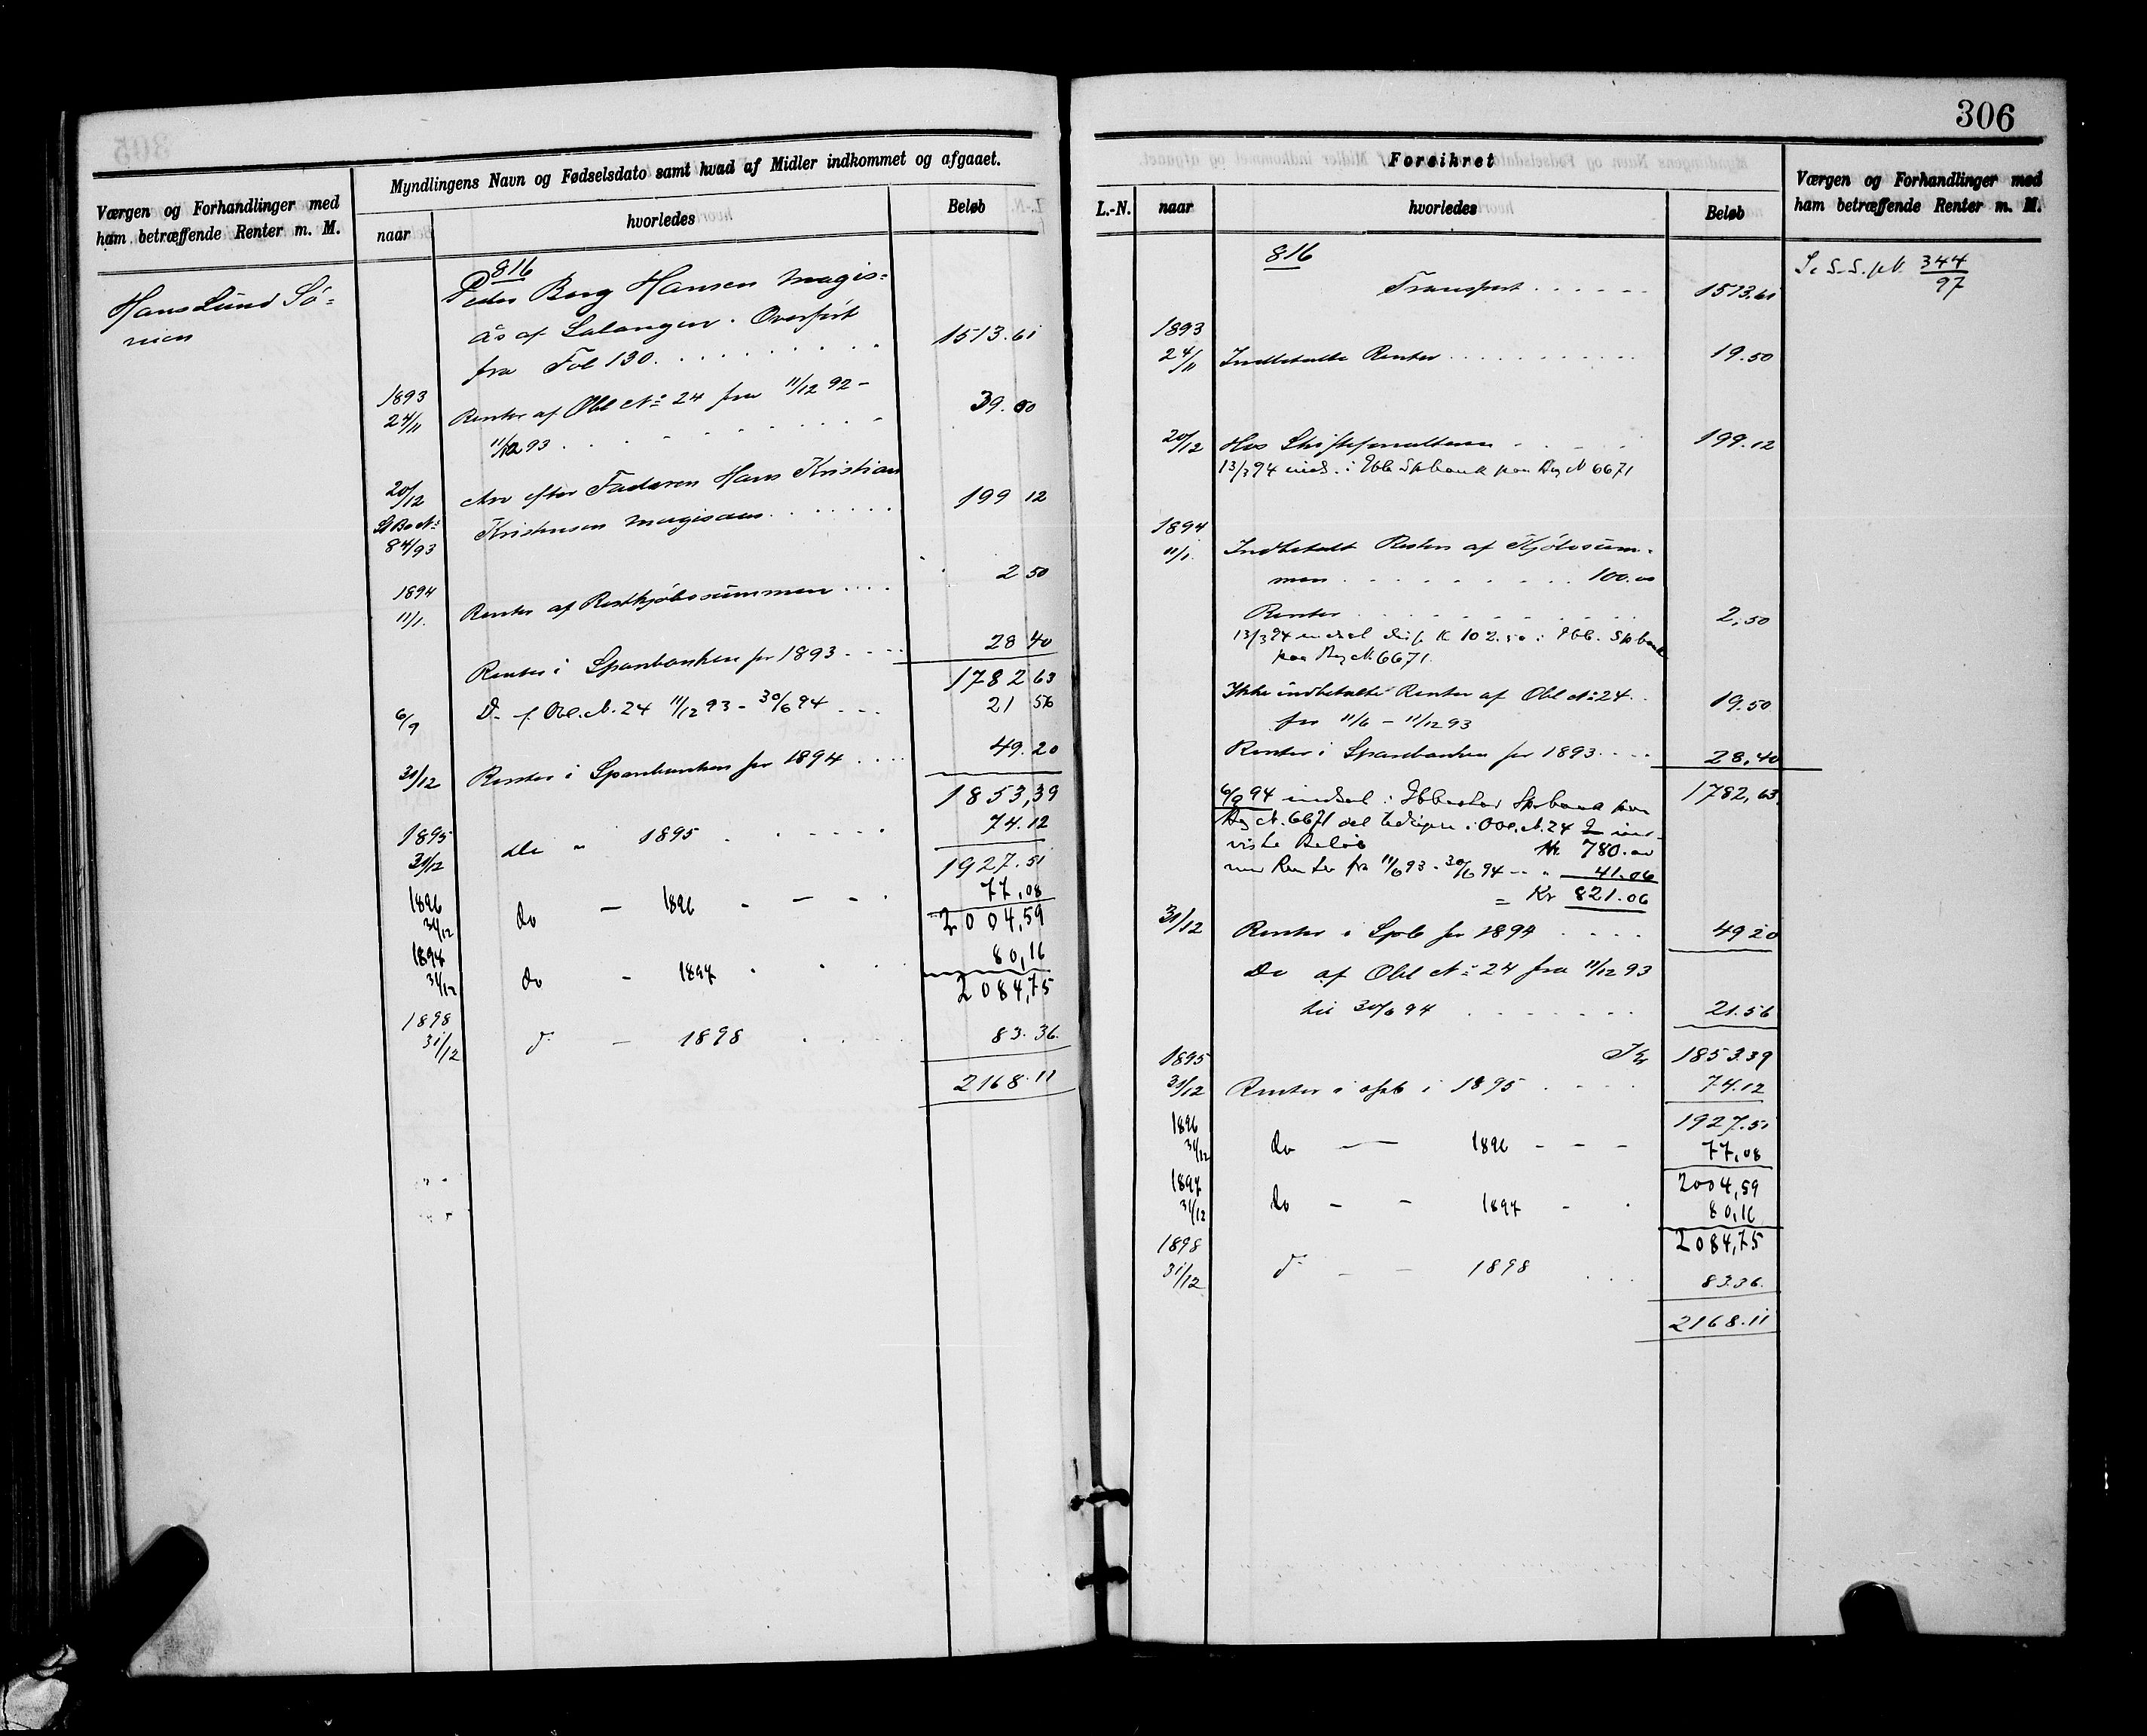 Værgen og Forhandlinger med
ham betræffende Renter m. M.
Myndlingens Navn og Fødselsdato samt hvad af Midler indkommet og afgaaet.
naar
hvorledes
Beløb
Hans Lund Sö-
816
Peder Borg Hansen Magis-
ås af Salangen. Overført
fra Fol 130 . . . . . . . . . 1513.61
1893
24/11 Renter af Obl No 24 fra 11/12 92 -
11/12 93 . . . . . . . . 39.00
20/12 Arv efter Faderen Hans Kristian
St Bo No Kristensen Magisaas . . . . . . . 199 12
84/93
1894
11/1. Renter af Restkjøbesummen . . . . 2 50
Renter i Sparebanken for 1893 . . . . 28 40
1782 63
6/9 Do f. Obl. N. 24 11/12 93 - 30/6 94 . . . 21 56
31/12 Renter i Sparebanken for 1894 . . . . 49.20
1853,39
1895
31/12 do " 1895 . . . . . . 74.12
1927.51
1896
31/12 do — 1896 - — - . 77,08
2004,59
1897
31/12 do - 1897 . . . 80,16
2084,75
1898
31/12 do — 1898 . . . 83.36.
2168.11
306
Forsikret
Værgen og Forhandlinger med
ham betræffende Renter m. M.
L.-N. naar hvorledes Beløb
816
S. S. S. pk. 344/97
Transport . . . . . . 1513.61
1893
24/11 Indbetalte Renter . . . . . . . . . . . 19.50
20/12 Hos Skifteforvalteren . . . . . 199.12
13/3 94 inds. i Ibb Spbank paa Bog N 6671
1894
11/1. Indbetalt Resten af Kjöbesum-
men . . . . . . . . . . 100.00
Renter . . . . . . . . . . . 2,50
13/3 94 indsat K 102.50 i Ibb. Spbank
paa Bog N. 6671.
Ikke indbetalte Renter af Obl No 24 . . 19.50
fra 11/6 - 11/12 93
Renter i Sparebanken for 1893 . . . . 28,40
1782,63
6/9 94 indsat i Ibbestad Spbank paa
Bog N. 6671 det tidligere i Obl. N. 24
viste Beløb Kr 780.00
med Renter fra 11/6 93 - 30/6 94 - - " 41.06
= Kr 821.06
31/12 Renter i Spb for 1894 . . . . 49 20
Do af Obl No 24 fra 11/12 93
til 30/6 94 . . . . . . . 21.56
Kr 1853.39
1895
31/12 Renter i Spb i 1895 . . . . 74.12
1927.51
1896
31/12 do — 1896 - - - 77,08
2004,59
1897
31/12 do - - 1897 - . 80,16
2084,75
1898
31/12 do - - 1898 . . . 83.36.
2168.11